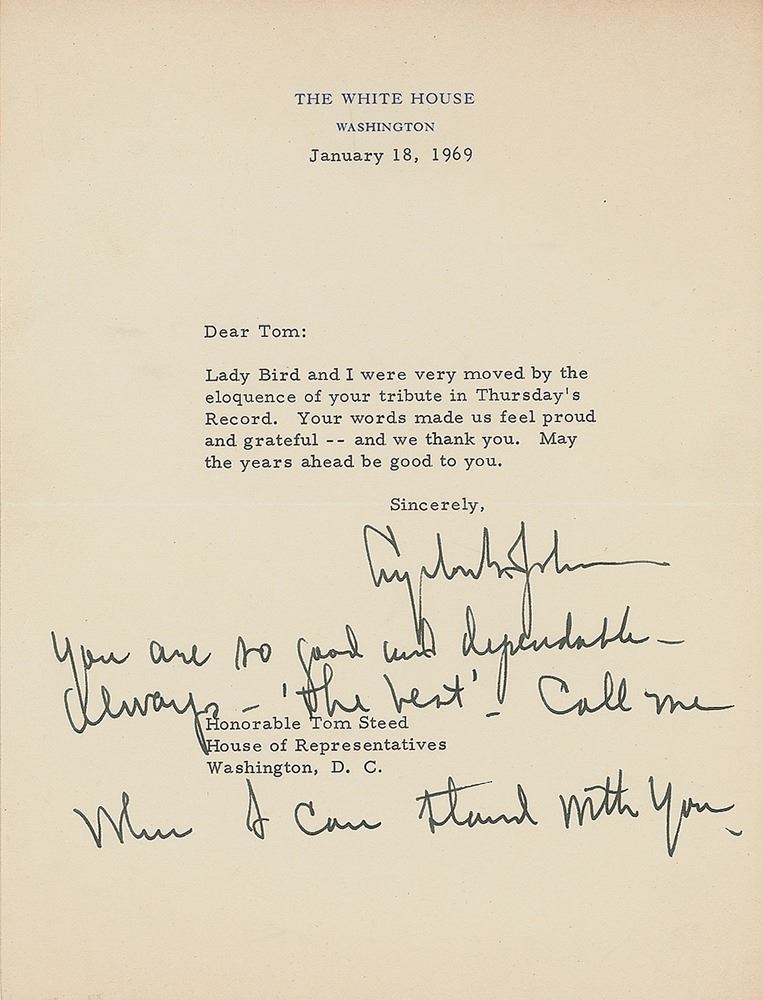 THE WHITE HOUSE
WASHINGTON
January 18, 1969
Dear Tom:
Lady Bird and I were very moved by the
eloquence of your tribute in Thursday's
Record. Your words made us feel proud
and grateful -- and we thank you. May
the years ahead be good to you.
Sincerely,
Lyndon B. Johnson
You are so good and dependable -
Always - 'the best' - Call me
Honorable Tom Steed
House of Representatives
Washington, D. C.
When I can stand with you.